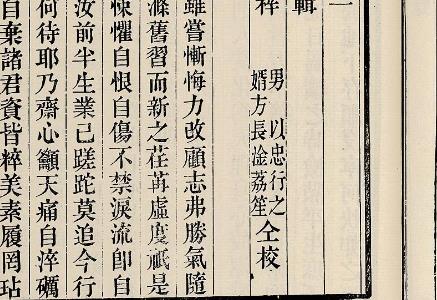 二
輯
梓
男以忠行之
婿方長淦荔笙
仝校
雖嘗慚悔力改顧志弗勝氣隨
滌舊習而新之荏苒虛度祗是
悚懼自恨自傷不禁淚流即自
汝前半生業已蹉跎莫追今行
何待耶乃齋心籲天痛自淬礪
自棄諸君資皆粹美素履罔玷